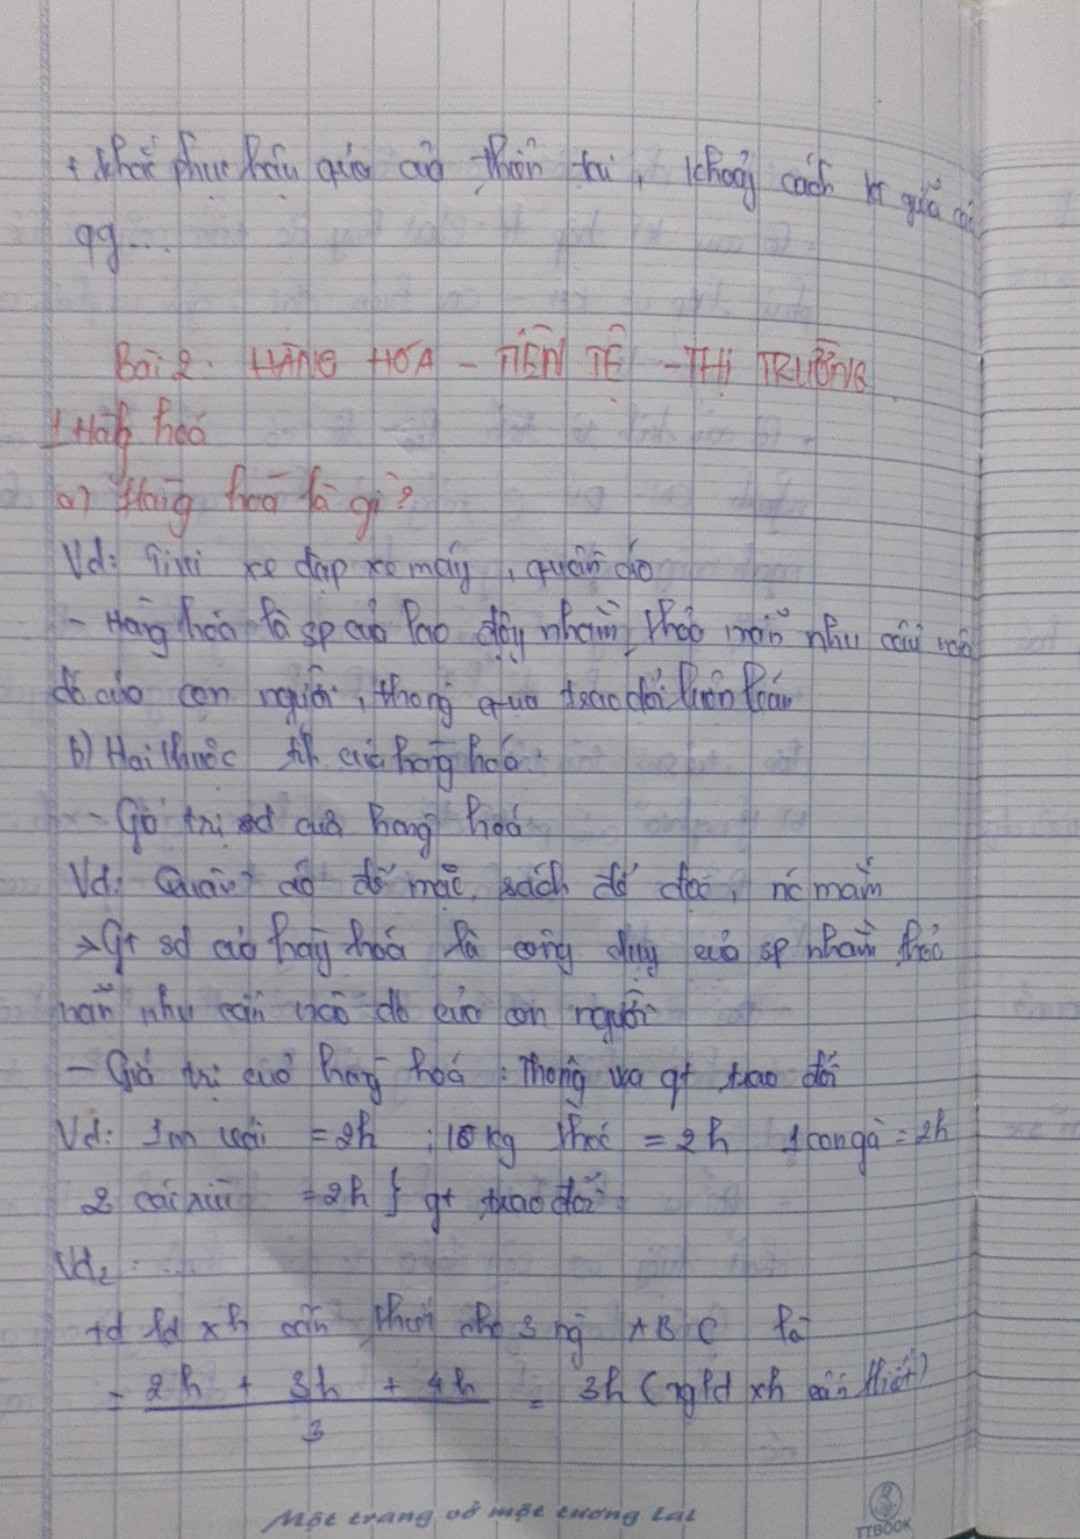 + khắc phục hậu quả của thiên tai, khoảng cách kt giữa các
qg...
Bài 2: HÀNG HÓA - TIỀN TỆ - THỊ TRƯỜNG
1 Hàng hoá
a) Hàng hoá là gì?
Vd: Tivi xe đạp xe máy, quần áo
- Hàng hóa là sp của lao động nhằm thỏa mãn nhu cầu nào
đó của con người, thông qua trao đổi buôn bán
b) Hai thuộc tính của hàng hoá
- Giá trị sd của hàng hoá
Vd: Quần áo để mặc, sách để đọc, nc mắm
> Gt sd của hàng hoá là công dụng của sp nhằm thỏa
mãn nhu cầu nào đó của con người
- Giá trị của hàng hoá: Thông qua gt trao đổi
Vd: 1m vải = 2h ; 10kg thóc = 2h 1 con gà = 2h
2 cái rìu = 2h } gt trao đổi
Vd2:
ld xh cần thiết cho 3 ng A B C là
= 2h + 3h + 4h = 3h ( ld xh cần thiết)
3
Một trang vở một tương lai
TTBOOK